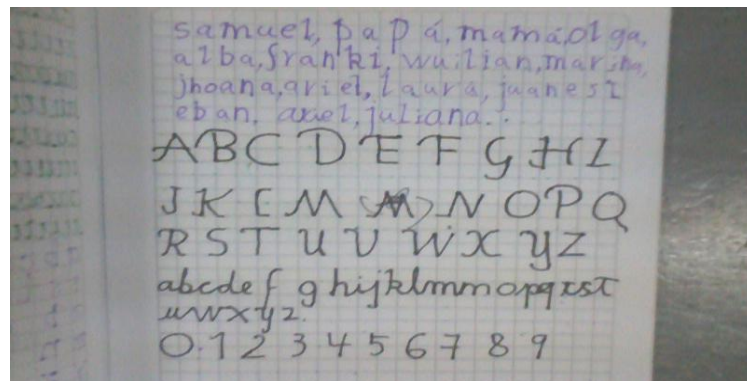 samuel, papá, mamá, olga,
alba, franki, wuilian, marina,
jhoana, ariel, laura, juanest
eban, axel, juliana..
A B C D E F G H I
J K L M (M) N O P Q
R S T U V W X Y Z
abcdefghijklmnopqrst
uvwxyz.
0.1 2 3 4 5 6 7 8 9